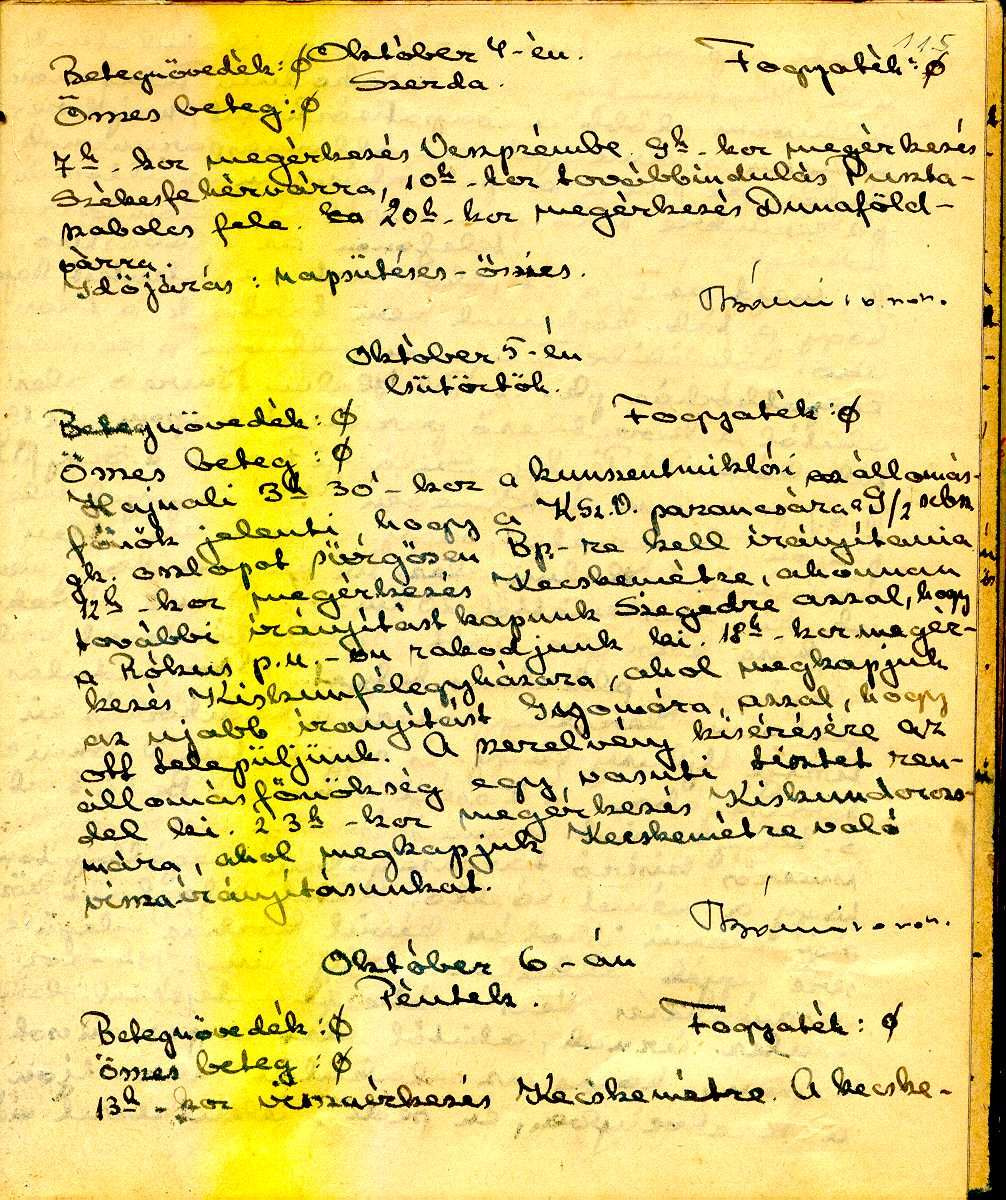 115
Betegnövedék: ø Október 4-én. Fogyaték: ø
Szerda.
Összes beteg: ø
7h-kor megérkezés Veszprémbe. 9h-kor megérkezés
Székesfehérvárra, 10h-kor továbbindulás Puszta-
szabolcs fele. 20h-kor megérkezés Dunaföld-
várra.
Időjárás: napsütéses-őszies.
Október 5-én
Csütörtök.
Betegnövedék: ø Fogyaték: ø
Összes beteg: ø
Hajnali 3h 30'-kor a kunszentmiklósi állomás-
főnök jelenti hogy a K.Sz.V. parancsára a
gk. oszlopot sürgősen Bp.-re kell irányítania
12h-kor megérkezés Kecskemétre, ahonnan
további irányítást kapunk Szegedre azzal, hogy
a Rókus p.u.-on rakodjunk ki. 18h-kor megér-
kezés Kiskunfélegyházára, ahol megkapjuk
az ujabb irányítást Gyomára, azzal, hogy
ott települjünk. A szerelvény kisérésére az
állomásfőnökség egy vasuti tisztet ren-
del ki. 23h-kor megérkezés Kiskundorozs-
mára, ahol megkapjuk Kecskemétre való
visszairányításunkat.
Október 6-án
Péntek.
Betegnövedék: ø Fogyaték: ø
Összes beteg: ø
13h-kor visszaérkezés Kecskemétre. A kecske-